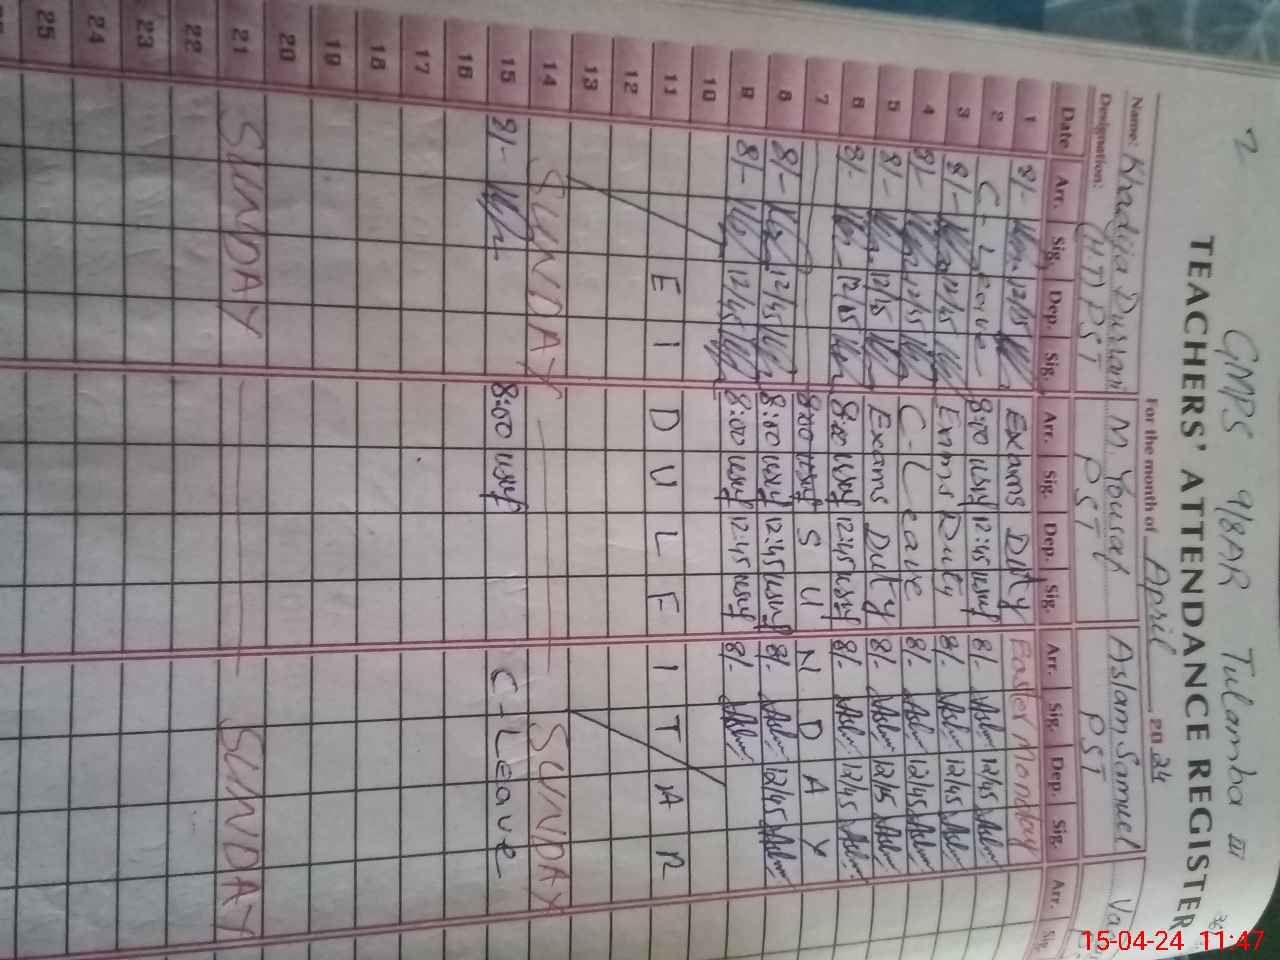 2 GMPS 9/8AR Tulamba III
TEACHERS' ATTENDANCE REGISTER
For the month of April 2024
Name: Khadija Durrani M. Yousaf Aslam Samuel
Designation: (HT) PST PST PST
Date Arr. Sig. Dep. Sig. Arr. Sig. Dep. Sig. Arr. Sig. Dep. Sig. Arr. Sig.
1 8/- 12/45 Exams Duty Easter Monday
2 C-Leave 8:00 12:45 8/- 12/45
3 8/- 12/45 Exams Duty 8/- 12/45
4 8/- 12/45 C-Leave 8/- 12/45
5 8/- 12/45 Exams Duty 8/- 12/45
6 8/- 12/45 8:00 12:45 8/- 12/45
7 8:00 S U N D A Y
8 8/- 12/45 8:00 12:45 8/- 12/45
9 8/- 12/45 8:00 12:45 8/-
10
11 E I D U L F I T A R
12
13
14 SUNDAY SUNDAY
15 8/- 8:00 C-Leave
16
17
18
19
20
21 SUNDAY SUNDAY
22
23
24
25
15-04-24 11:47